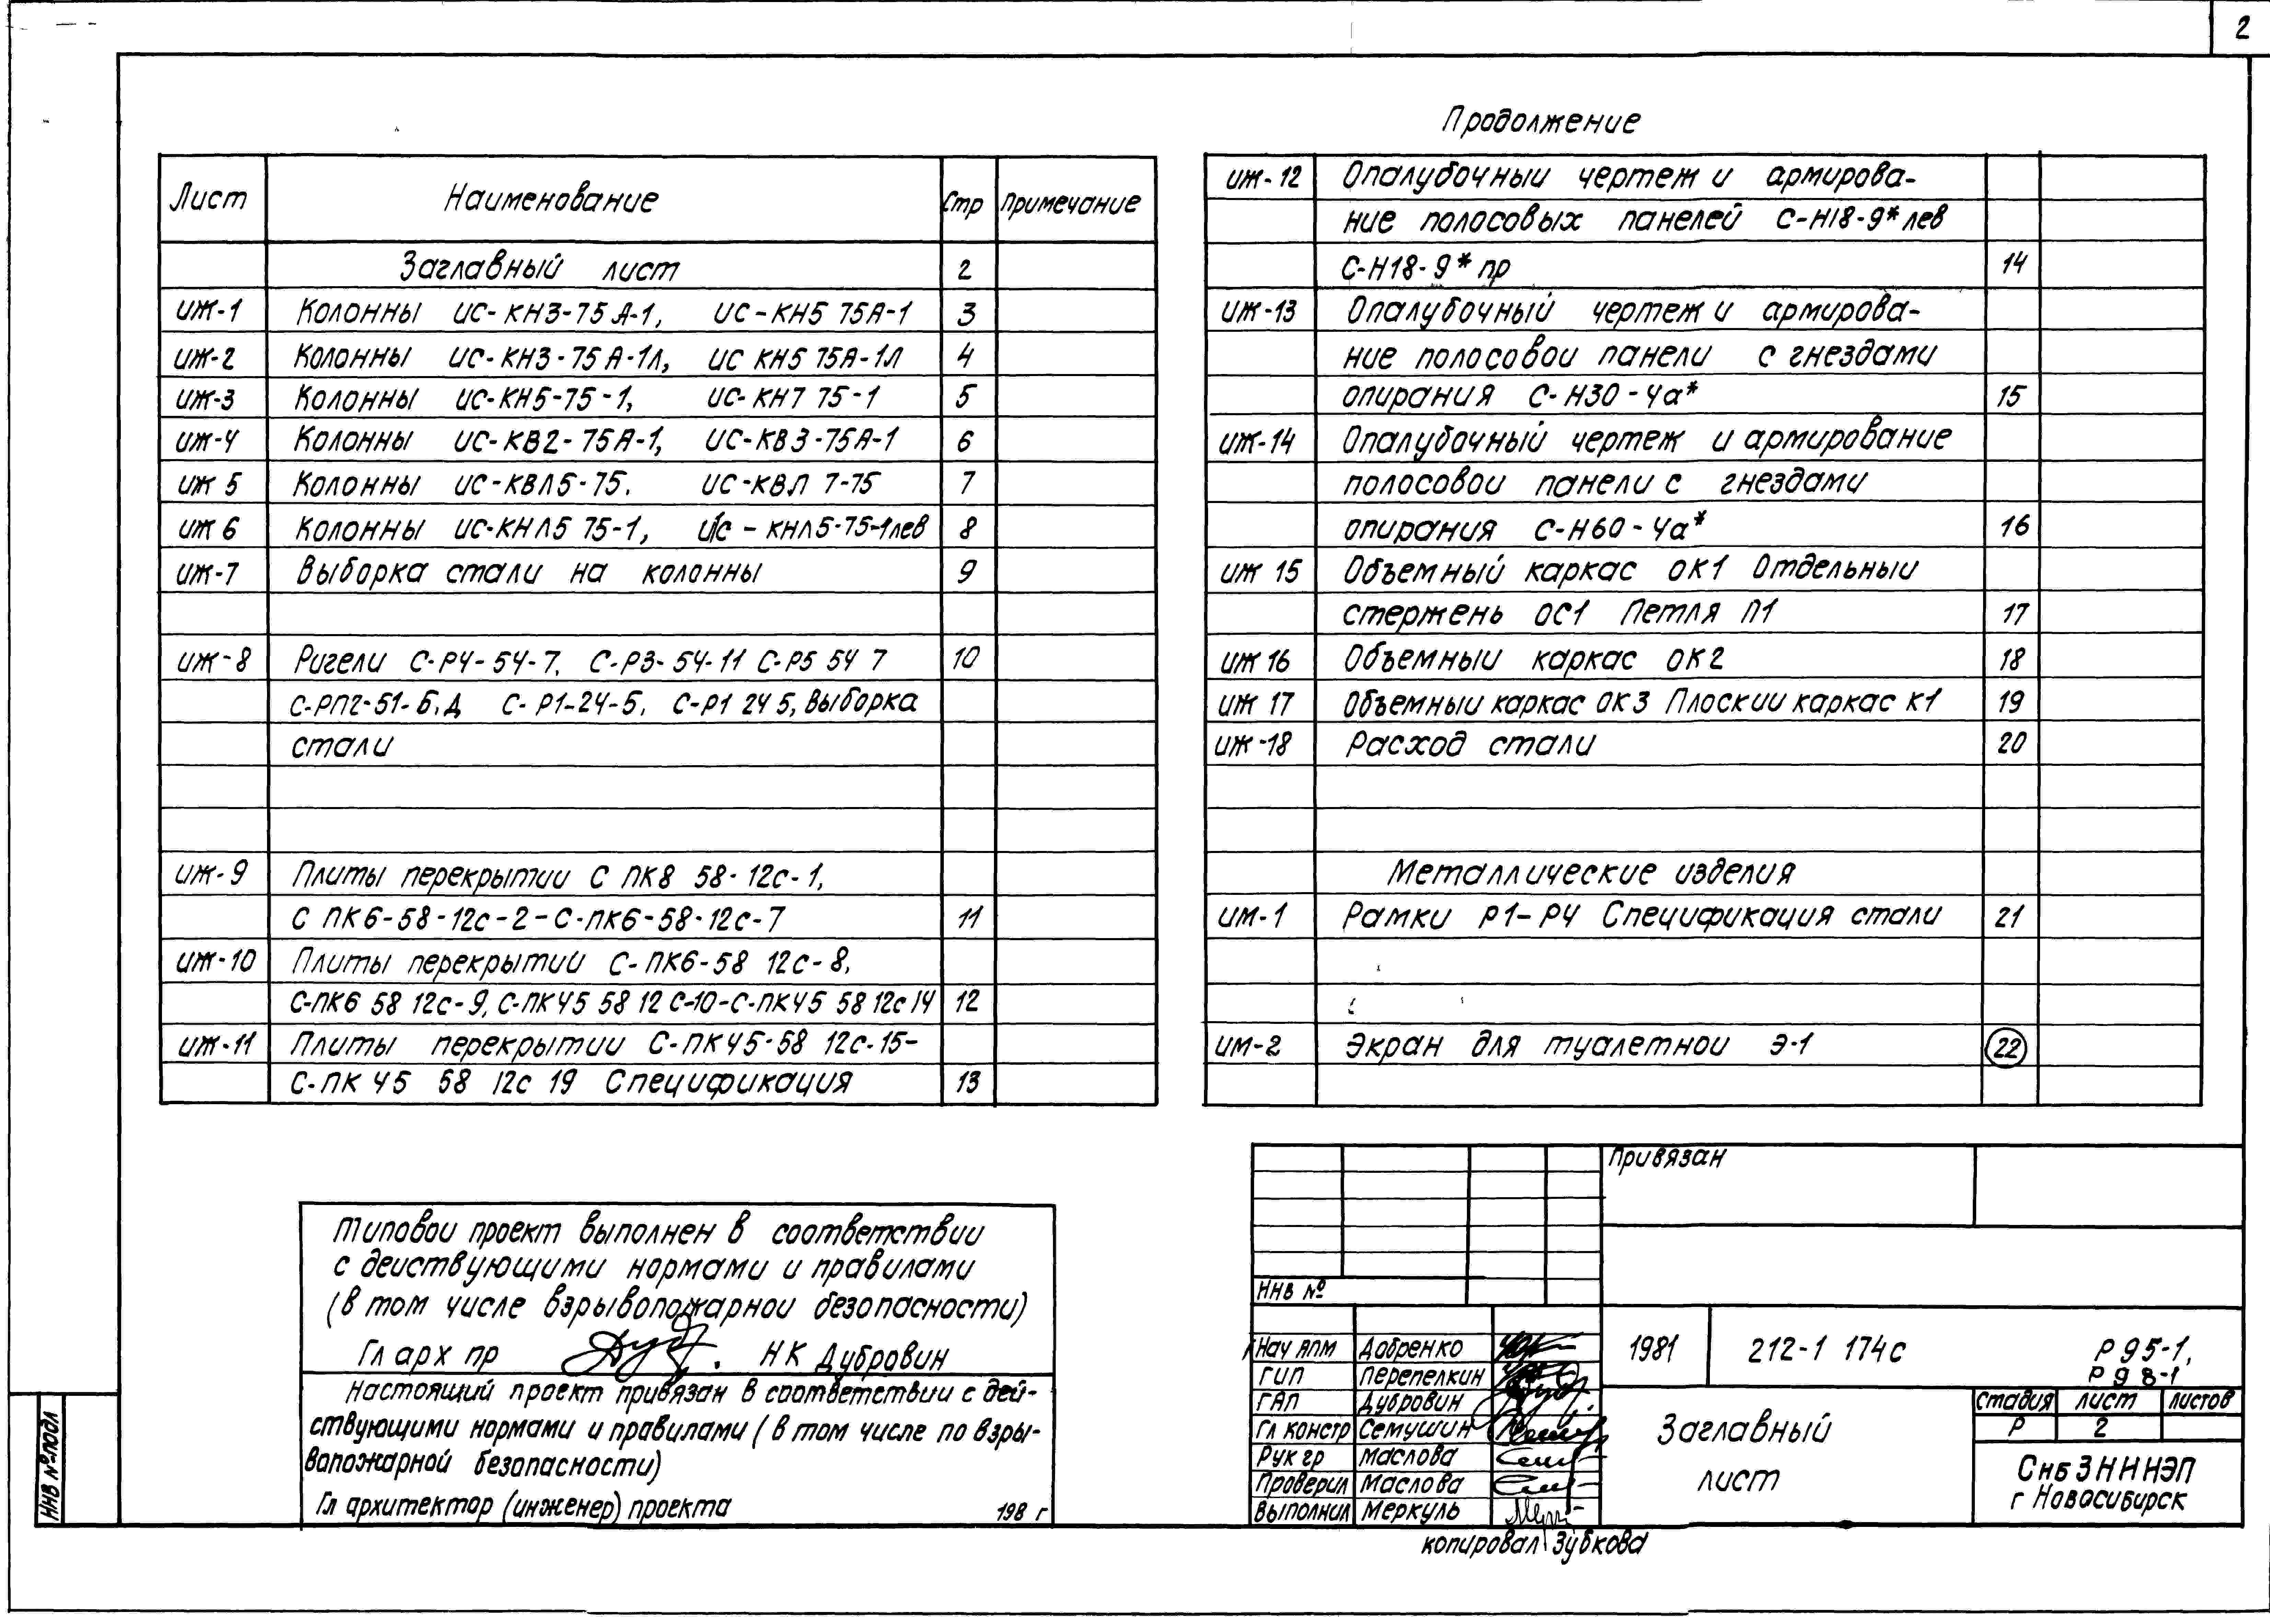 2
Лист Наименование Стр Примечание
Заглавный лист 2
ИЖ-1 Колонны ИС-КН3-75А-1, ИС-КН5 75А-1 3
ИЖ-2 Колонны ИС-КН3-75А-1Л, ИС КН5 75А-1Л 4
ИЖ-3 Колонны ИС-КН5-75-1, ИС-КН7 75-1 5
ИЖ-4 Колонны ИС-КВ2-75А-1, ИС-КВ3-75А-1 6
ИЖ 5 Колонны ИС-КВЛ5-75. ИС-КВЛ 7-75 7
ИЖ 6 Колонны ИС-КНЛ5 75-1, ИС-КНЛ5-75-1лев 8
ИЖ-7 Выборка стали на колонны 9
ИЖ-8 Ригели С-Р4-54-7, С-Р3-54-11 С-Р5 54 7 10
С-РП2-51-Б,Д С-Р1-24-5, С-Р1 24 5, Выборка
стали
ИЖ-9 Плиты перекрытии С ПК8 58-12с-1,
С ПК6-58-12с-2-С-ПК6-58-12с-7 11
ИЖ-10 Плиты перекрытии С-ПК6-58 12с-8,
С-ПК6 58 12с-9, С-ПК45 58 12 С-10-С-ПК45 58 12с 14 12
ИЖ-11 Плиты перекрытии С-ПК45-58 12с-15-
С-ПК 45 58 12с 19 Спецификация 13
Продолжение
ИЖ-12 Опалубочныи чертеж и армирова-
ние полосовых панелей С-Н18-9* лев
С-Н18-9* пр 14
ИЖ-13 Опалубочный чертеж и армирова-
ние полосовои панели с гнездами
опирания С-Н30-4а* 15
ИЖ-14 Опалубочный чертеж и армирование
полосовои панели с гнездами
опирания С-Н60-4а* 16
ИЖ 15 Объемный каркас ОК1 Отдельныи
стержень ОС1 Петля П1 17
ИЖ 16 Объемныи каркас ОК2 18
ИЖ 17 Объемныи каркас ОК3 Плоскии каркас К1 19
ИЖ-18 Расход стали 20
Металлические изделия
ИМ-1 Рамки Р1-Р4 Спецификация стали 21
ИМ-2 Экран для туалетнои Э-1 22
Типовои проект выполнен в соответствии
с деиствующими нормами и правилами
(в том числе взрывопожарнои безопасности)
Гл арх пр НК Дубровин
Настоящий проект привязан в соответствии с дей-
ствующими нормами и правилами (в том числе по взры-
вопожарной безопасности)
Гл архитектор (инженер) проекта 198 г
Инв № подл
Привязан
Инв №
Нач АПМ Добренко
ГИП Перепелкин
ГАП Дубровин
Гл констр Семушин
Рук гр Маслова
Проверил Маслова
Выполнил Меркуль
1981 212-1 174с Р 95-1,
Р 98-1
Заглавный
лист
Стадия Лист Листов
Р 2
СибЗНИИЭП
г Новосибирск
копировал Зубкова